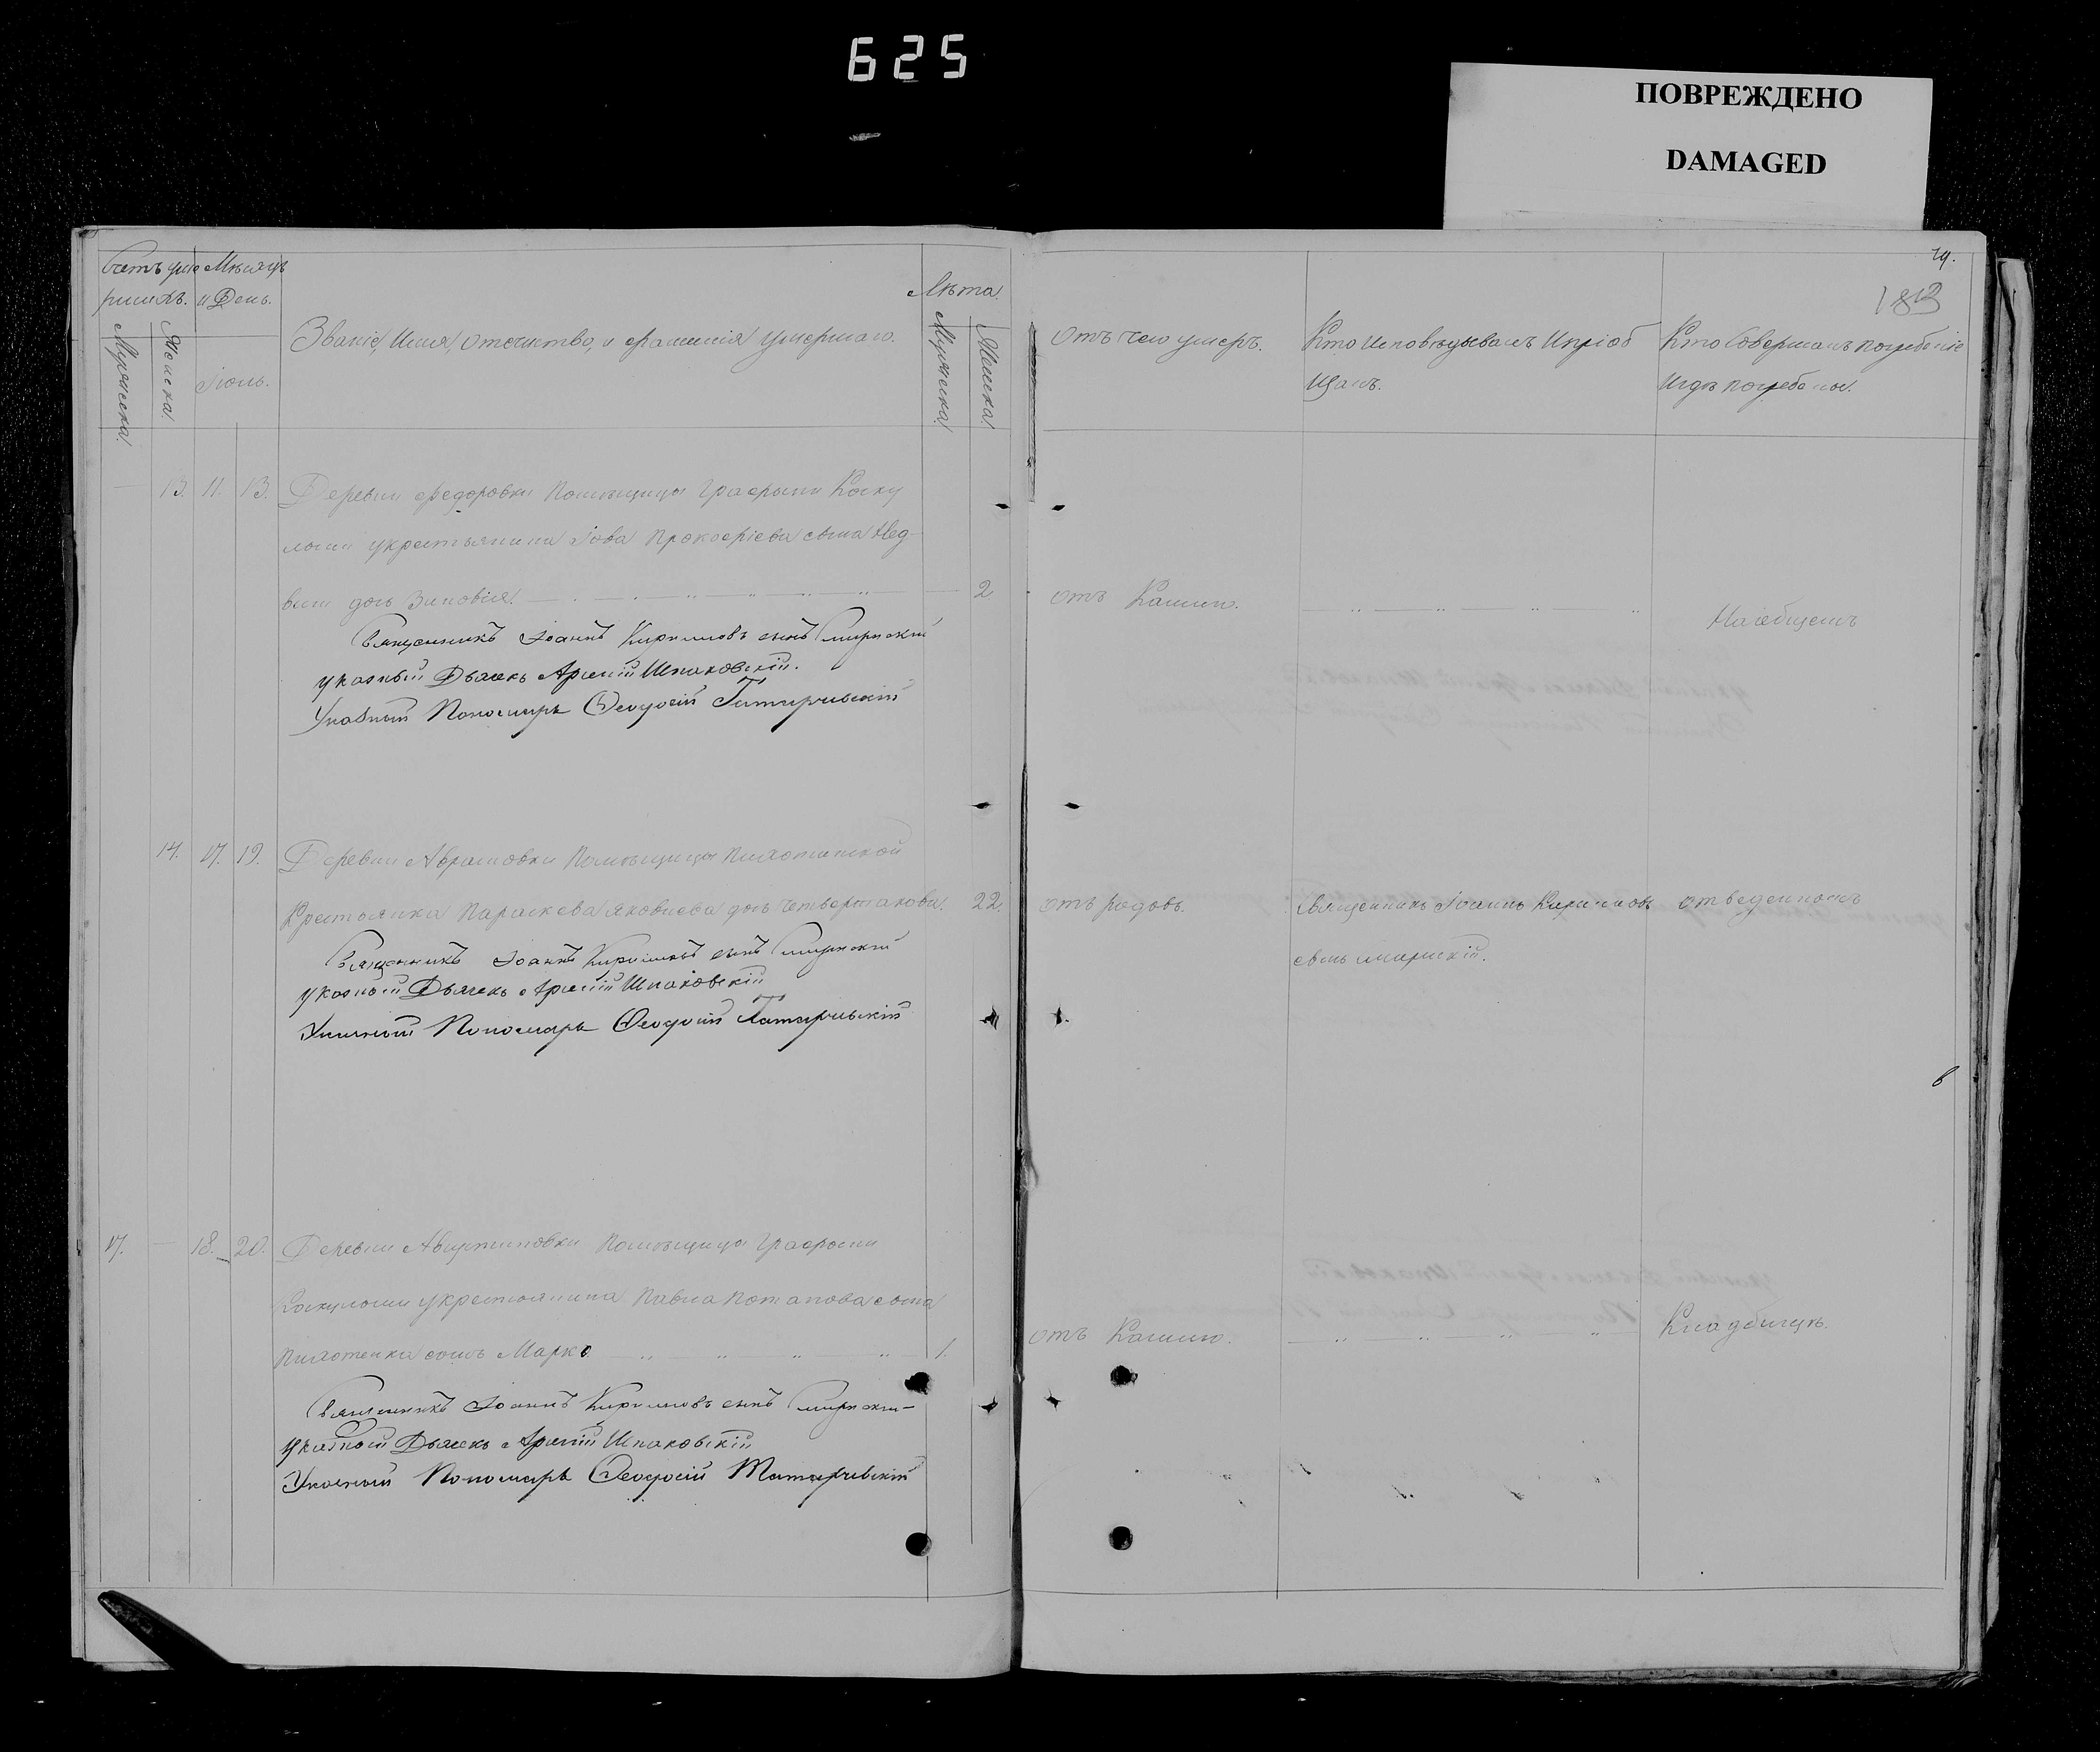 625
ПОВРЕЖДЕНО
DAMAGED
Счетъ уме Мѣсяцъ
ршихъ. и День.
Мужеска
Женска
Іюнь.
Званіе, Имя, Отечество, и фамилія умершаго.
Лѣта.
Мужеска
Женска
Отъ чего умеръ.
Кто Исповѣдывалъ И пріоб
щалъ.
Кто Совершалъ погребеніе
И гдѣ погребены.
19.
183
13. 11. 13. Деревни Федоровки Помѣщицы Графини
у крестьянина Іова Прокофіева сына Мед
дочь Зиновія. 2 отъ Кашлю.
Священникъ Іоаннъ Кирилловъ сынъ
указный Дьячекъ Арсеній Шпаковскій.
Указный Пономарь Феодосій
14. 17. 19. Деревни Аврамовки Помѣщицы
Крестьянка Параскева Яковлева дочь 22. отъ родовъ. Священникъ Іоаннъ Кирилловъ отведенномъ
сынъ
Священникъ Іоаннъ Кирилловъ сынъ
указный Дьячекъ Арсеній Шпаковскій
Указный Пономарь Феодосій
17. 18. 20. Деревни Августиновки Помѣщицы Графини
у крестьянина Павла Потапова сына
сынъ Марко 1. отъ Кашлю. Кладбищѣ.
Священникъ Іоаннъ Кирилловъ сынъ
Указный Дьячекъ Арсеній Шпаковскій
Указный Пономарь Феодосій